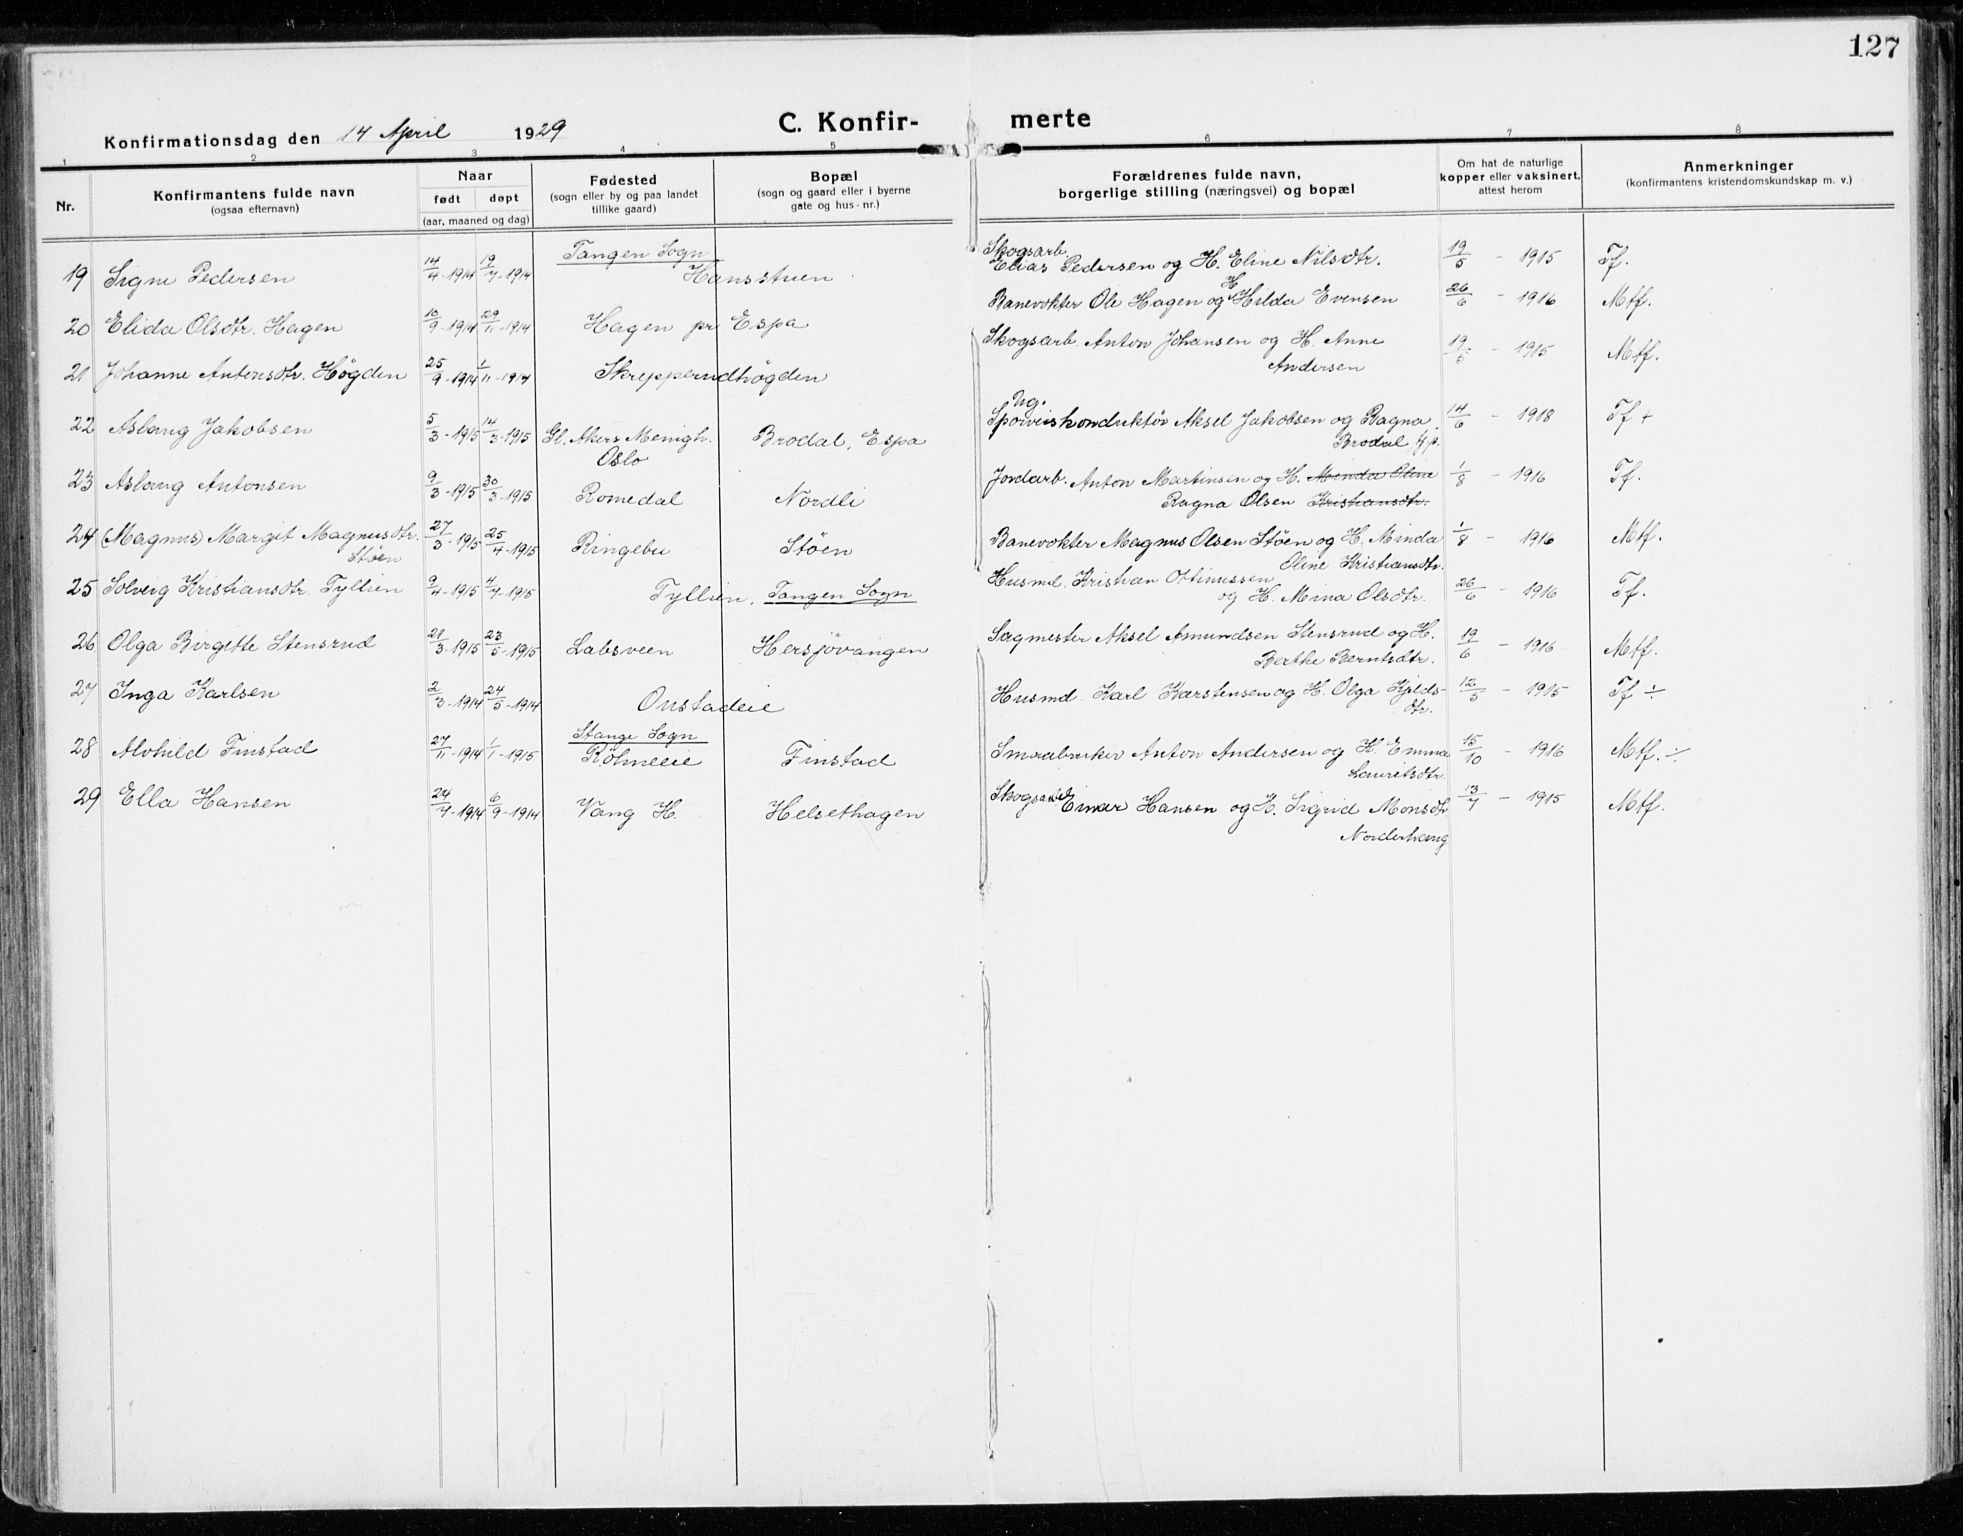 127
Konfirmationsdag den 14 April 1929
C. Konfirmerte
1 2 3 4 5 6 7 8
Nr.
Konfirmantens fulde navn
(ogsaa efternavn)
Naar
født døpt
(aar, maaned og dag)
Fødested
(sogn eller by og paa landet
tillike gaard)
Bopæl
(sogn og gaard eller i byerne
gate og hus-nr.)
Forældrenes fulde navn,
borgerlige stilling (næringsvei) og bopæl
Om hat de naturlige
kopper eller vaksinert,
attest herom
Anmerkninger
(konfirmantens kristendomskundskap m. v.)
Tangen Sogn Skogsarb.
19 Signe Pedersen 14/4-1914 19/7-1914 Hansstuen Elias Pedersen og H. Eline Nilsdtr. 19/5 - 1915 Tf.
20 Elida Olsdtr. Hagen 10/9-1914 29/11-1914 Hagen pr Espa Banevokter Ole Hagen og H Hilda Evensen 26/6 - 1916 Mtf.
21 Johanne Antonsdtr. Høgden 25/9-1914 1/11-1914 Skrepperudhøgden Skogsarb. Anton Johansen og H. Anne 19/5 - 1915 Mtf.
Andersen
22 Aslaug Jakobsen 5/3-1915 14/3-1915 Gl. Akers Menigh. Brodal, Espa Ug. Sporveiskonduktør Aksel Jakobsen og Ragna 14/6 - 1918 Tf +
Oslo Brodal
23 Aslaug Antonsen 9/3-1915 30/3-1915 Romedal Nordli Jordarb. Anton Martinsen og H. Minda Oline 1/8 - 1916 Tf.
Ragna Olsen Kristiansdtr.
24 (Magnus) Margit Magnusdtr. 27/3-1915 25/4-1915 Ringebu Støen Banevokter Magnus Olsen Støen og H. Minda 1/8 - 1916 Mtf.
Støen Oline Kristiansdtr.
25 Solveig Kristiansdtr. Tyllien 9/4-1915 4/7-1915 Tyllien, Tangen Sogn Husmd. Kristian Ottinussen 26/6 - 1916 Tf.
og H. Mina Olsdtr.
26 Olga Birgitte Stensrud 21/3-1915 23/5-1915 Labsveen Hersjøvangen Sagmester Aksel Amundsen Stensrud og H. 19/6 - 1916 Mtf.
Berthe Berntsdtr.
27 Inga Karlsen 2/3-1914 24/5-1914 Onstadeie Husmd. Karl Karstensen og H. Olga Kjelds- 12/5 - 1915 Tf ÷
dtr.
Stange Sogn
28 Alvhild Finstad 27/11-1914 1/1-1915 Røhneeie Finstad Smaabruker Anton Andersen og H. Emma 15/10 - 1916 Mtf. ÷
Lauritsdtr.
29 Ella Hansen 24/7-1914 6/9-1914 Vang H. Helsethagen Skogsarb. Einar Hansen og H. Sigrid Monsdtr. 13/7 - 1915 Mtf.
Norderhaug